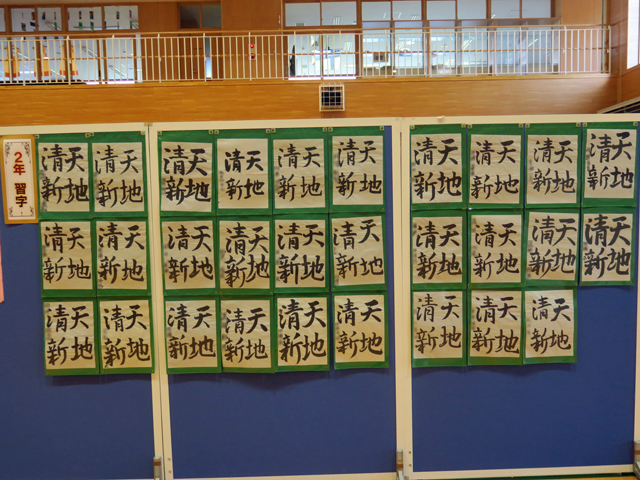 2年 習字
天地
清新
天地
清新
天地
清新
天地
清新
天地
清新
天地
清新
天地
清新
天地
清新
天地
清新
天地
清新
天地
清新
天地
清新
天地
清新
天地
清新
天地
清新
天地
清新
天地
清新
天地
清新
天地
清新
天地
清新
天地
清新
天地
清新
天地
清新
天地
清新
天地
清新
天地
清新
天地
清新
天地
清新
天地
清新